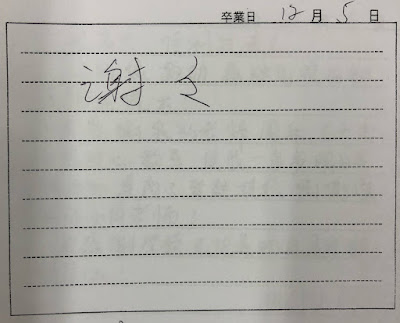 卒業日 12月5日
谢々